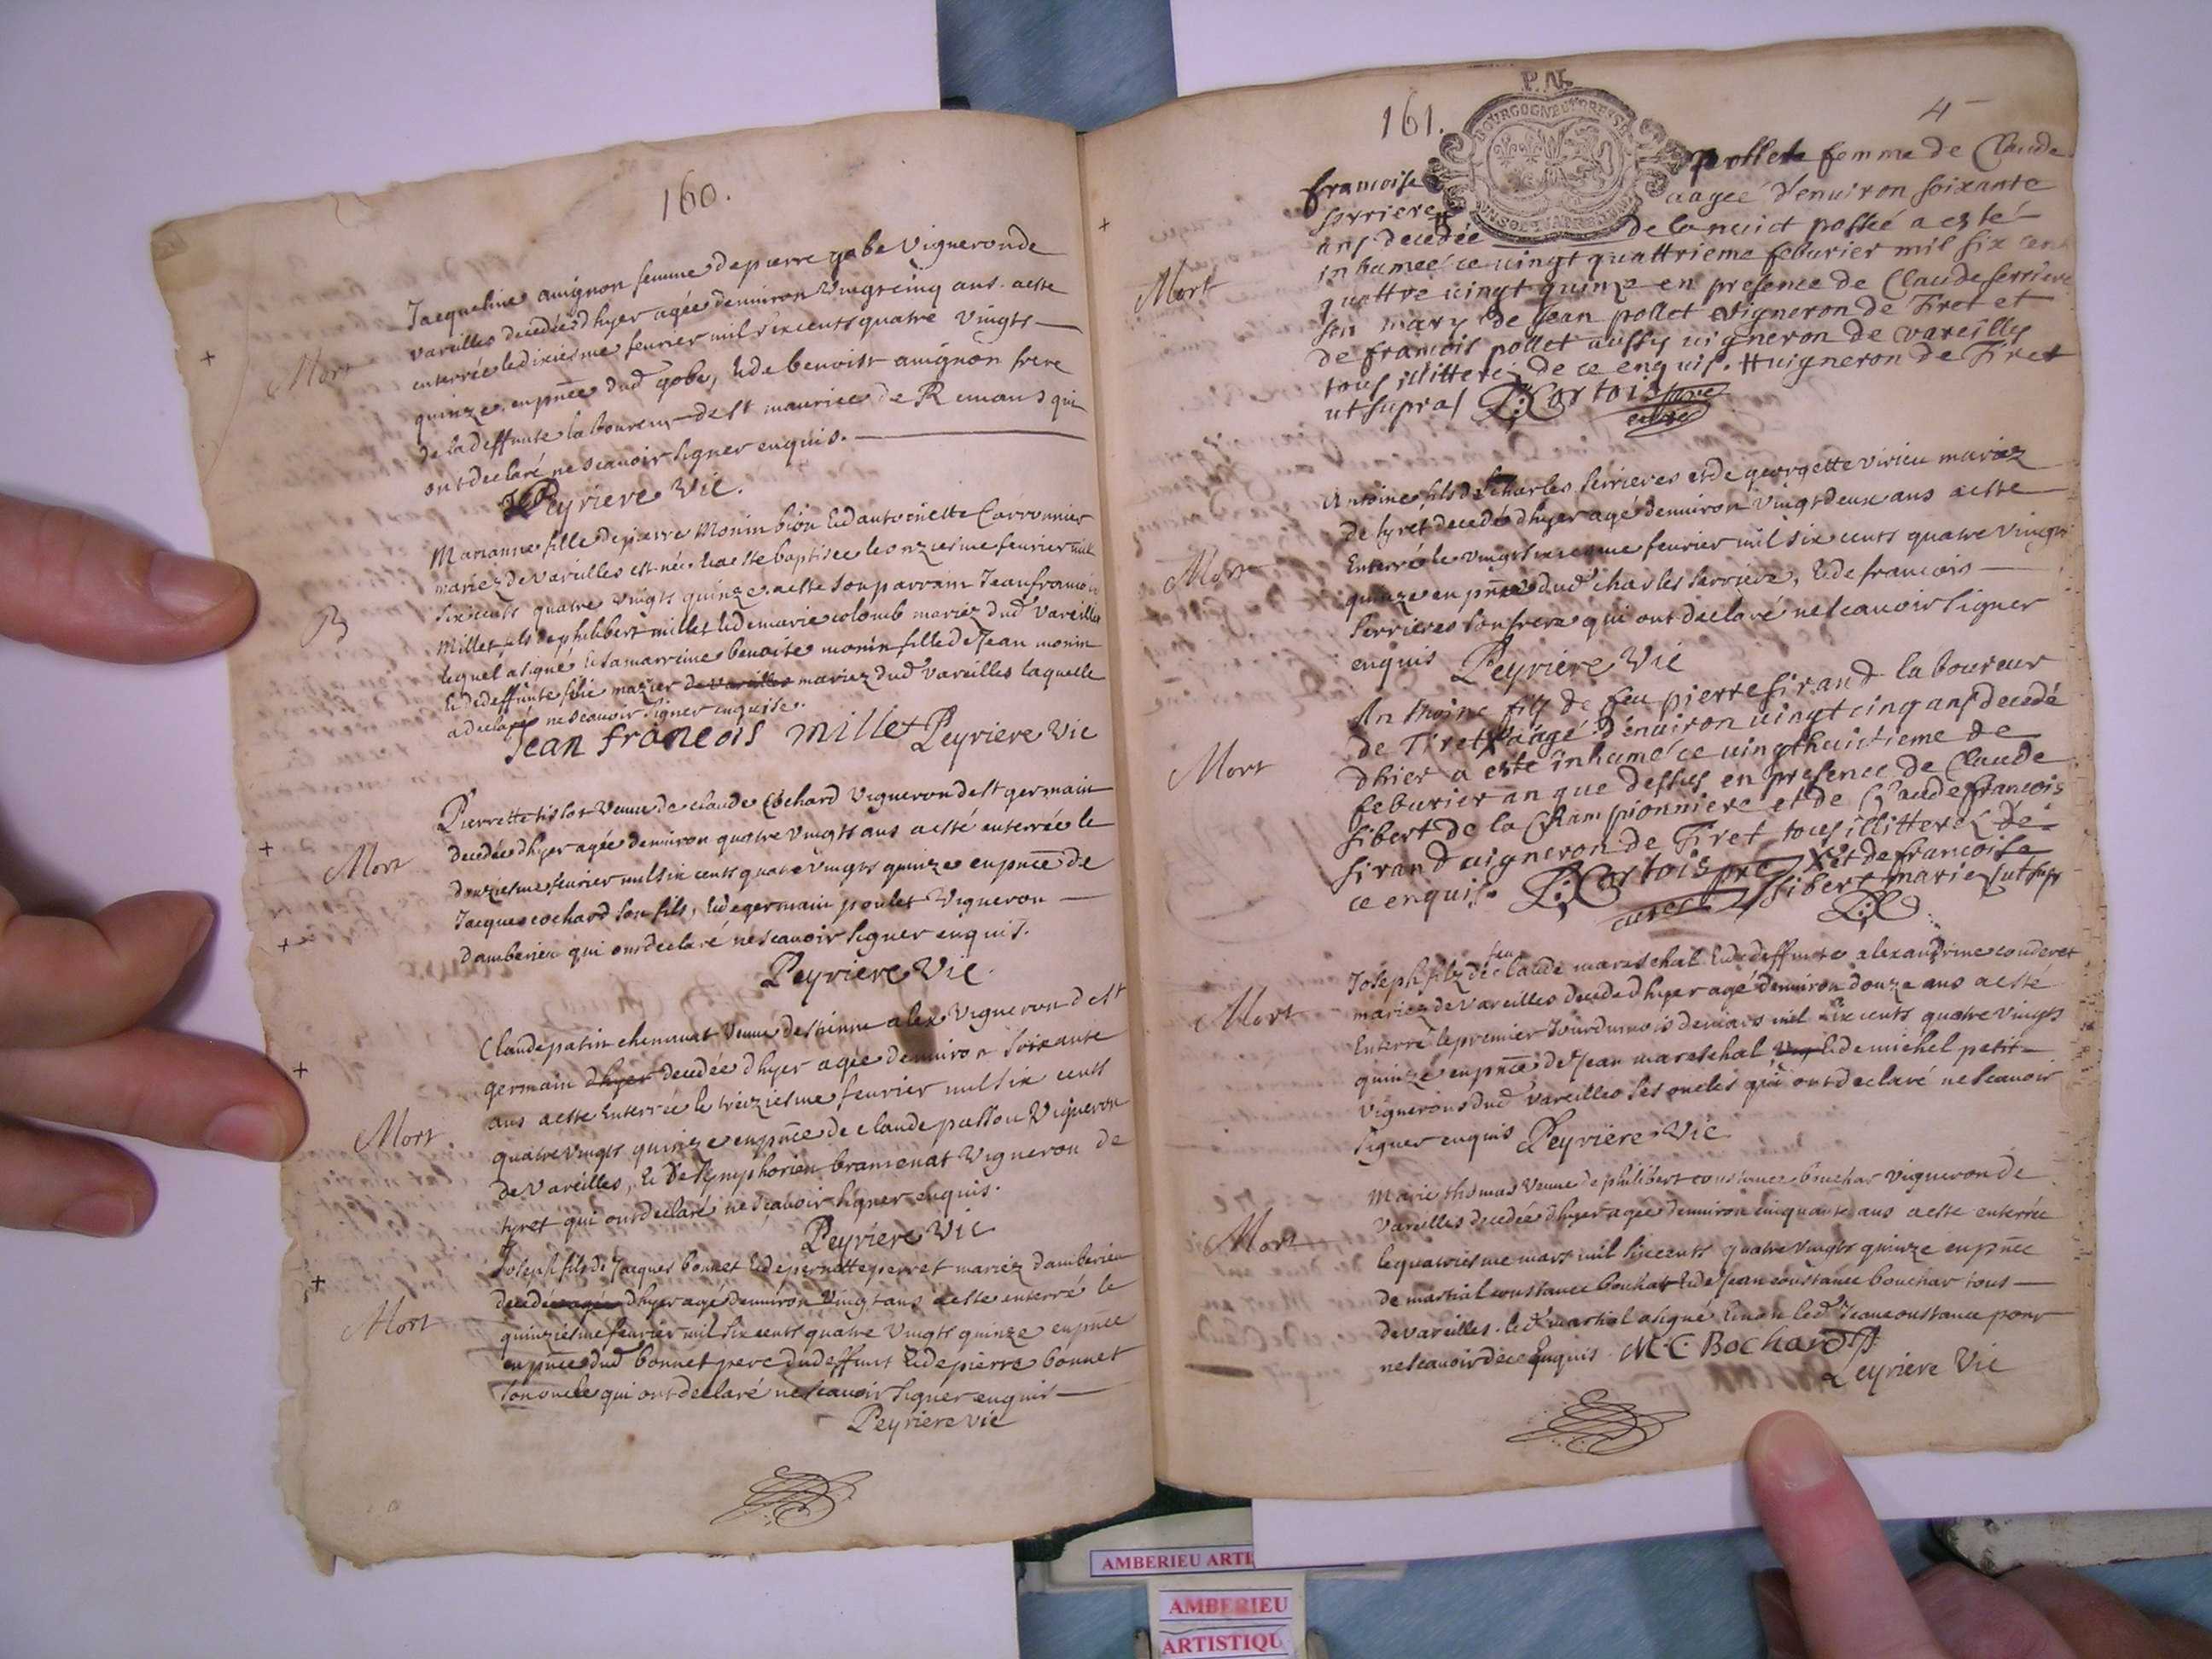 160.
Jacqueline auignon femme de pierre gobe Vigneron de
Mort
vareilles decedée dhyer agée denuiron Vingt cinq ans. a esté
enterrée le dixiesme feurier mil six cents quatre Vingts
quinze en pñce dud gobe, et de benoist auignon frere
de la deffunte laboureur de st maurice de Remans qui
ont declaré ne scauoir signer enquis.
Peyriere Vic.
B
Marianne fille de pierre Monin bion et d'antoinette Carronnier
mariez de Vareilles est née et a esté baptisee le onziesme feurier mil
six cents quatre Vingts quinze. a esté son parrain Jean francois
Millet fils de philibert millet et de marie colomb mariez dud Vareilles
lequel a signé et sa marreine benoite monin fille de Jean monin
et de deffunte mazier de Vareilles mariez dud Vareilles laquelle
a declaré ne scauoir signer enquise.
Jean francois millet Peyriere Vic
Mort
Pierrette tislot Veuue de claude Cochard Vigneron de st germain
decedée dhyer agée denuiron quatre Vingts ans a esté enterrée le
douziesme feurier mil six cents quatre Vingts quinze en pñce de
Jacques cochard son fils, et de germain poulet Vigneron
damberieu qui ont declaré ne scauoir signer enquis.
Peyriere Vic.
Claude patin chenauat Veuue destienne alex Vigneron de st
germain dhyer decedée dhyer agée denuiron soixante
Mort
ans a esté Enterrée le treiziesme feurier mil six cents
quatre Vingts quinze en pñce de claude passou Vigneron
de Vareilles, et de Symphorien bramenat Vigneron de
tyret qui ont declaré ne scauoir signer enquis.
Peyriere Vic
Joseph fils de Jacques bonnet et de pernette perret mariez damberieu
Mort
decedée agée dhyer agé denuiron Vingt ans a esté enterré le
quinziesme feurier mil six cents quatre Vingts quinze en pñce
en pñce dud bonnet pere dud deffunt et de pierre bonnet
son oncle qui ont declaré ne scauoir signer enquis
Peyriere vic
161.
P. N.
4
BOURGOGNE ET BRESSE
francoise pollet femme de Claude
serriere aagée d'enuiron soixante
ans decedée de la nuict passée a esté
Mort
inhumée ce uingt quattrieme feburier mil six cent
quattre uingt quinze en presence de Claude serriere
son mary de Jean pollet Vigneron de Tiret et
de francois pollet aussy uigneron de vareilly
tous illitterez de ce enquis. # uigneron de Tiret
ut supra P: Cortois pre
curé
Antoine fils de charles serrieres et de georgette virieu mariez
de tyret decedé dhyer agé denuiron Vingt deux ans a esté
Mort
Enterré le vingt sixiesme feurier mil six cents quatre vingts
quinze en pñce dud charles serriere, et de francois
serrieres son frere qui ont declaré ne scauoir signer
enquis Peyriere Vic
Anthoine fils de feu pierre sirand laboureur
de Tiret aagé d'enuiron uingt cinq ans decedé
Mort
dhier a esté inhumé ce uingthuictieme de
feburier an que dessus en presence de Claude
sibert de la Championniere et de Claude francois
sirand uigneron de Tiret tous illitterez de
ce enquis. P: Cortois pre X et de francoise
curé sibert marie ut supr
P: C
Joseph filz de feu claude mareschal et de deffunte alexandrine couderet
Mort
mariez de Vareilles decedé dhyer agé denuiron douze ans a esté
Enterré le premier Jour du mois de mars mil six cents quatre vingts
quinze en pñce de Jean mareschal et de michel petit
Vignerons dud Vareilles ses oncles qui ont declaré ne scauoir
signer enquis Peyriere Vic
Marie thomas Veuue de philibert constance bouchar Vigneron de
Mort
Vareilles decedée dhyer agée denuiron cinquante ans a esté enterrée
le quatriesme mars mil six cents quatre Vingts quinze en pñce
de martial constance bouchar et de Jean constance bouchar tous
de vareilles. led martial a signé et non led Jean constance pour
ne scauoir de ce Enquis. M. C. Bochard
Peyriere Vic
AMBERIEU ARTI
AMBERIEU
ARTISTIQU